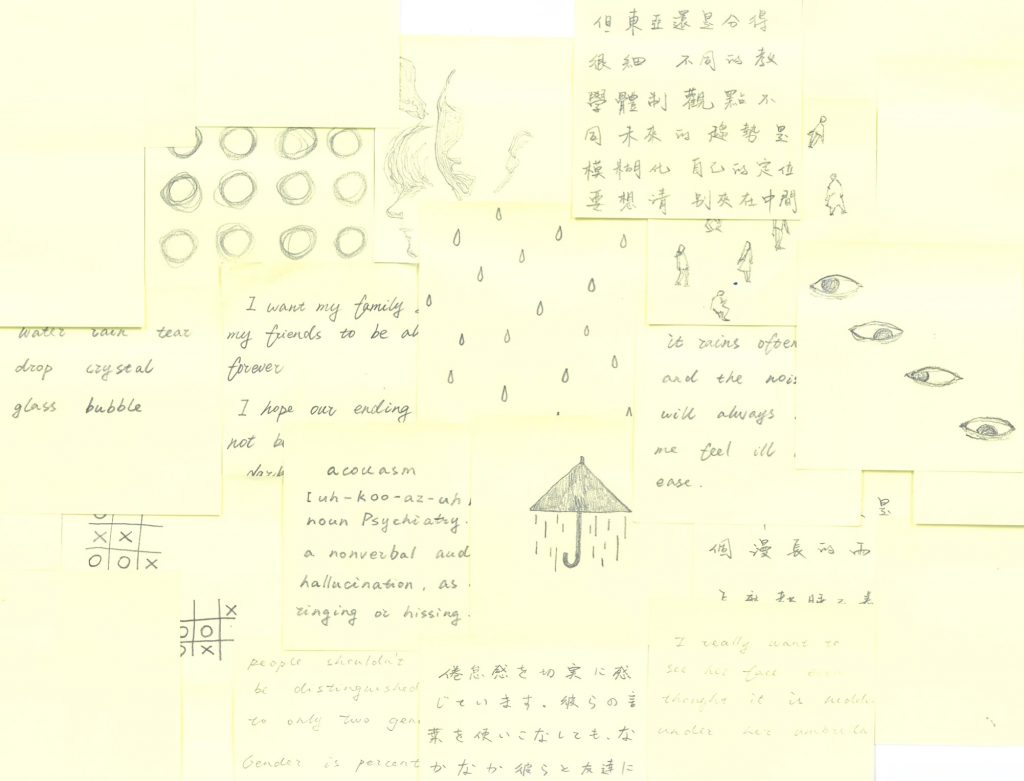 但東亞還是分得
很細 不同的教
學體制 觀點不
同 未來的趨勢是
模糊化 自己的定位
要想清 別夾在中間
water rain tear
drop crystal
glass bubble
I want my family
my friends to be al
forever
I hope our ending
not b
it rains often
and the nois
will always
me feel ill
ease.
acouasm
[uh-koo-az-uh
noun Psychiatry.
a nonverbal aud
hallucination, as
ringing or hissing.
是
個漫長的雨
people shouldn't
be distinguished
to only two gen
Gender is percent
倦怠感を切実に感
じています。彼らの言
葉を使いこなしても、な
かなか彼らと友達に
I really want to
see her face even
thought it is hidde
under her umbrella